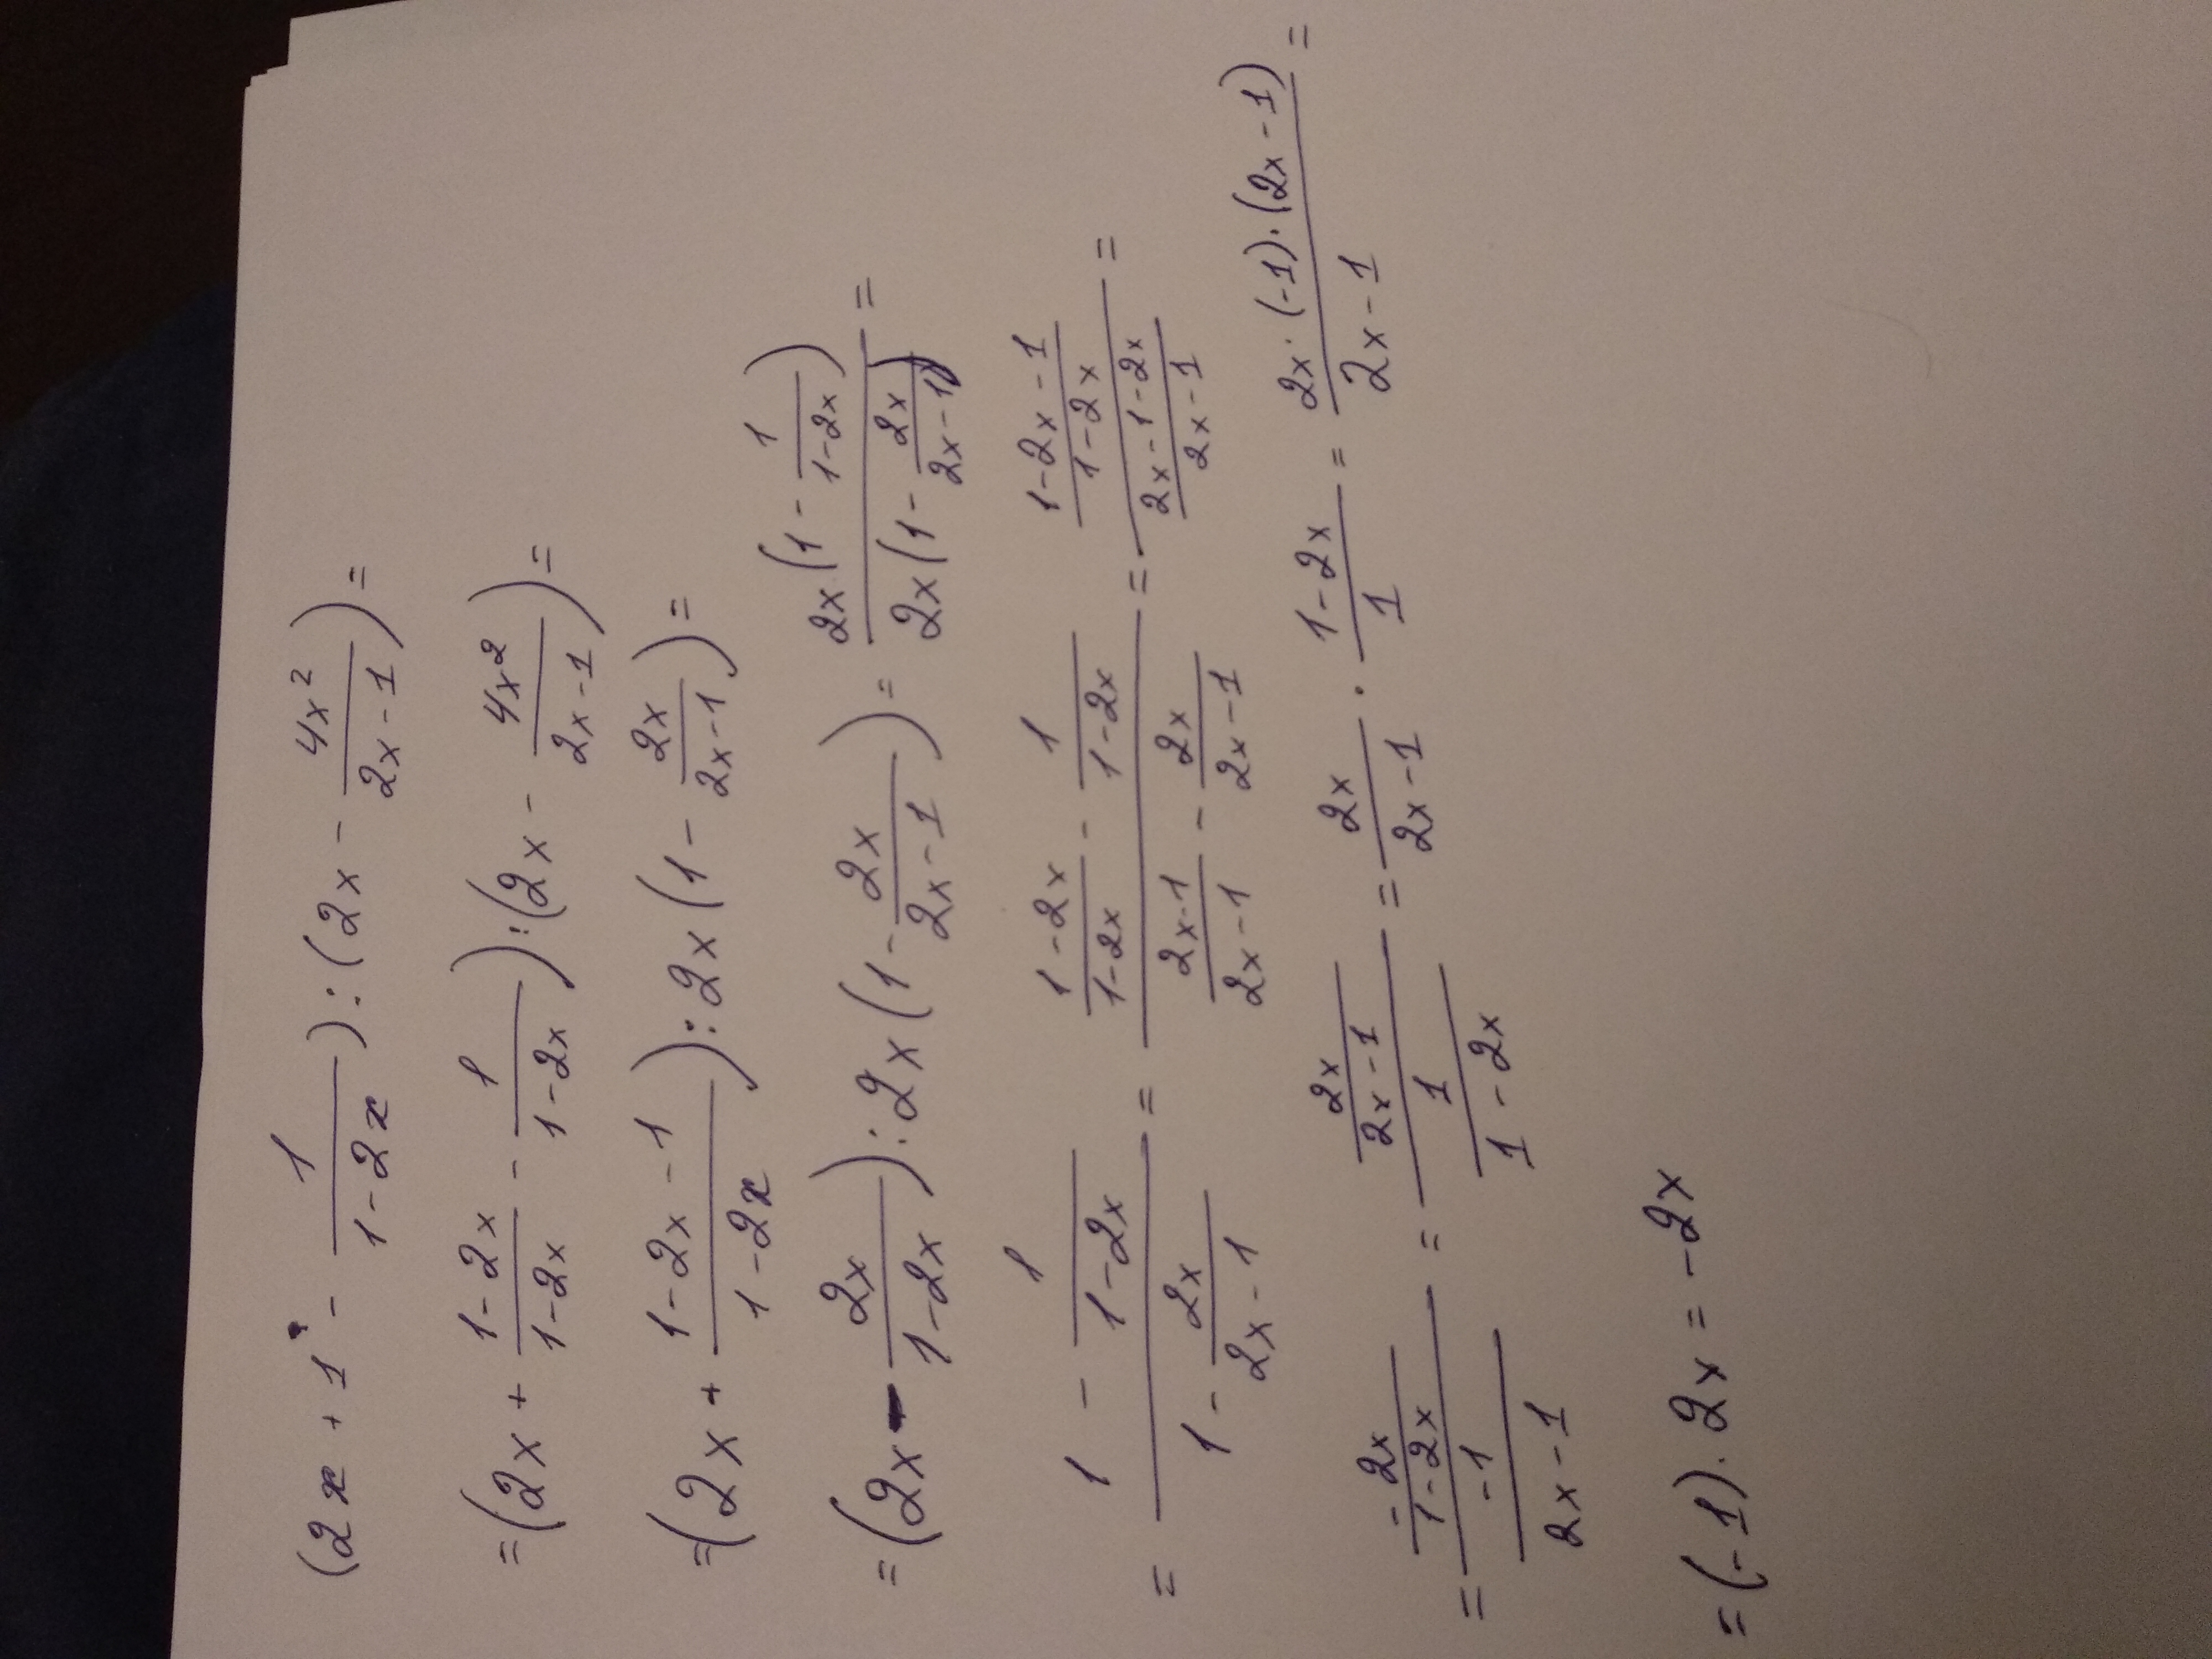 (2x + 1 - \frac{1}{1-2x}) : (2x - \frac{4x^2}{2x-1}) =
= (2x + \frac{1-2x}{1-2x} - \frac{1}{1-2x}) : (2x - \frac{4x^2}{2x-1}) =
= (2x + \frac{1-2x-1}{1-2x}) : 2x (1 - \frac{2x}{2x-1}) =
= (2x - \frac{2x}{1-2x}) : 2x (1 - \frac{2x}{2x-1}) = \frac{2x (1 - \frac{1}{1-2x})}{2x (1 - \frac{2x}{2x-1})} =
= \frac{1 - \frac{1}{1-2x}}{1 - \frac{2x}{2x-1}} = \frac{\frac{1-2x}{1-2x} - \frac{1}{1-2x}}{\frac{2x-1}{2x-1} - \frac{2x}{2x-1}} = \frac{\frac{1-2x-1}{1-2x}}{\frac{2x-1-2x}{2x-1}} =
= \frac{-\frac{2x}{1-2x}}{\frac{-1}{2x-1}} = \frac{\frac{2x}{2x-1}}{\frac{1}{1-2x}} = \frac{2x}{2x-1} \cdot \frac{1-2x}{1} = \frac{2x \cdot (-1) \cdot (2x-1)}{2x-1} =
= (-1) \cdot 2x = -2x